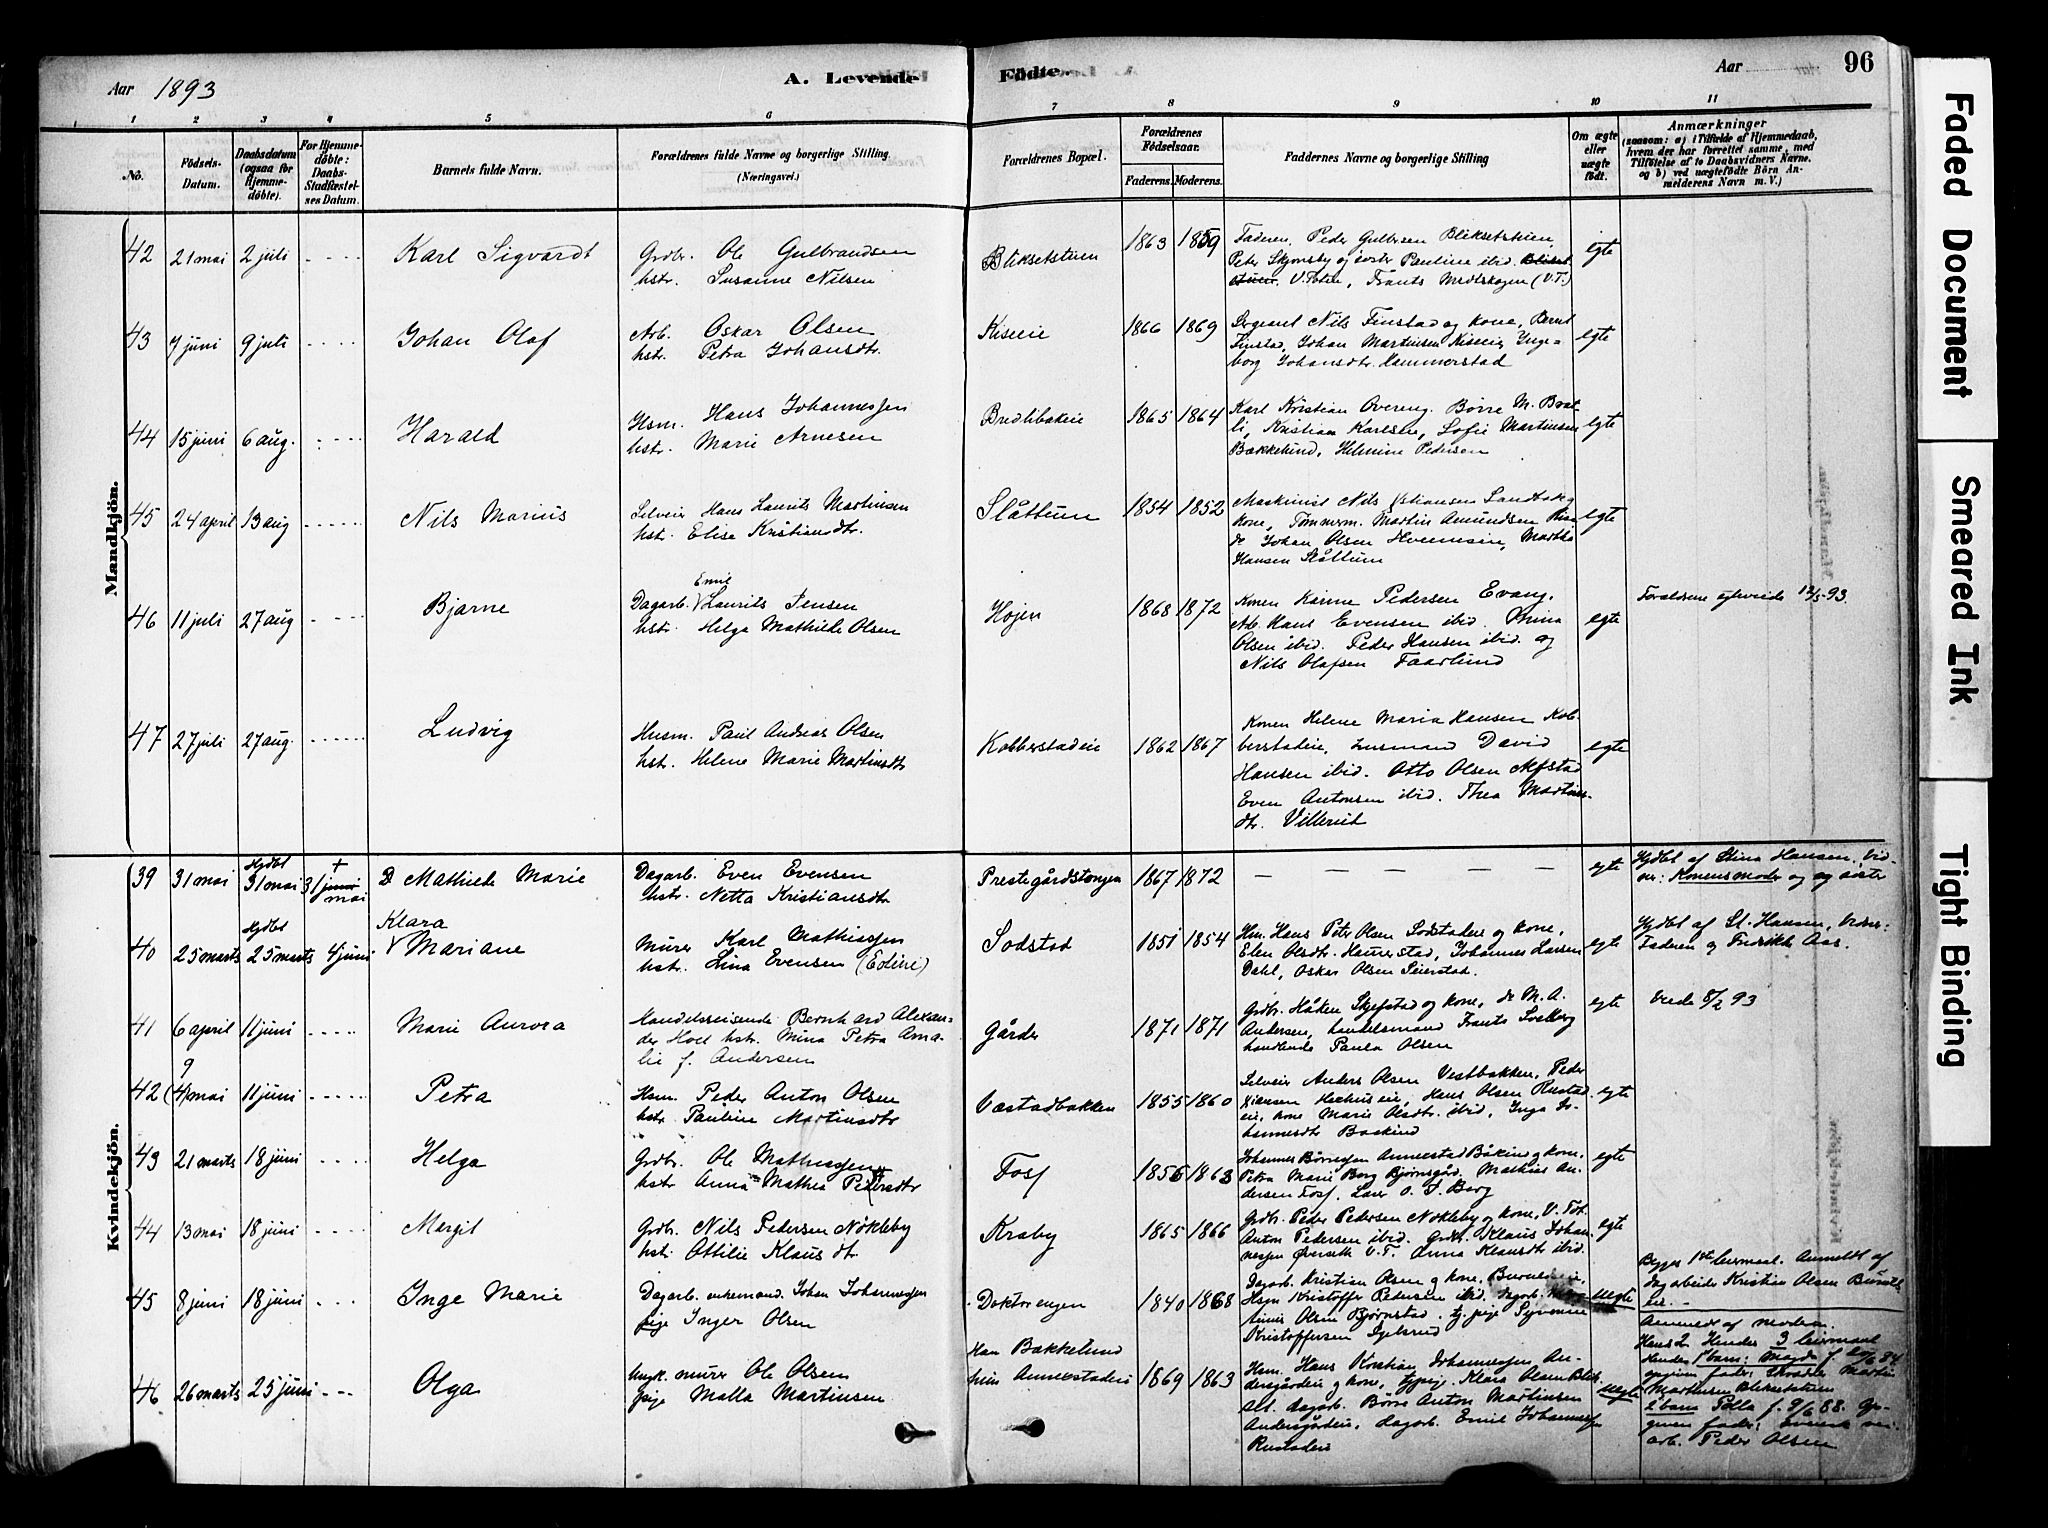 Aar 1893
A. Levende
Födte.
Aar
96
1 2 3 4 5 6 7 8 9 10 11
No.
Födsels-Datum.
Daabsdatum (ogsaa for Hjemmedöbte).
For Hjemmedöbte: Daabs-Stadfæstelses Datum.
Barnets fulde Navn.
Forældrenes fulde Navne og borgerlige Stilling.
(Næringsvei.)
Forældrenes Bopæl.
Forældrenes Födselsaar.
Faderens. Moderens.
Faddernes Navne og borgerlige Stilling
Om ægte eller uægte födt.
Anmærkninger
(saasom: a) i Tilfælde af Hjemmedaab, hvem der har forrettet samme, med Tilföielse af to Daabsvidners Navne. og b) ved uægtefödte Börn Anmelderens Navn m. V.)
Mandkjön.
42 21 mai 2 juli Karl Sigvardt
Grdbr. Ole Gulbrandsen
hstr. Susanne Nilsen
Bliksetstuen 1863 1859
Faderen, Peder Gulbrsen Bliksetstuen,
Peter Skjønsby og søster Pauline ibid.
V. Toten, Frants Medtskogen (V.T.)
egte
43 7 juni 9 juli Johan Olaf
Arb. Oskar Olsen
hstr. Petra Johansdtr.
Kiseie 1866 1869
Sergeant Nils Finstad og kone, Bernt
Finstad, Johan Martinsen Kiseie, Inge-
borg Johansdtr. Hammerstad
egte
44 15 juni 6 aug. Harald
Hsm. Hans Johannessen
hstr. Marie Arnesen
Bredlibakeie 1865 1864
Karl Kristian Overeng, Børre M. Brat-
li, Kristian Karlsen, Sofie Martinsen
Bækkelund, Helmine Pedersen
egte
45 24 april 13 aug Nils Marius
Selveier Hans Laurits Martinsen
hstr. Elise Kristiansdtr.
Slåttum 1854 1852
Maskinist Nils
kone, Tømmerm. Martin Amundsen
Johan Olsen Martha
Hansen Slåttum
egte
46 11 juli 27 aug Bjarne
Emil
Dagarb. Laurits Jensen
hstr. Helga Mathilde Olsen
Højen 1868 1872
Konen Karine Pedersen Evang,
Arb. Hans Evensen ibid. Mina
Olsen ibid. Peder Hansen ibid. og
Nils Olafsen Faarlund
egte
Forældrene egteviede 12/5-93.
47 27 juli 27 aug. Ludvig
Husm. Paul Andreas Olsen
hstr. Helene Marie Martinsdtr
Kobberstadeie 1862 1867
Konen Helene Maria Hansen Kob-
berstadeie, husmand David
Hansen ibid. Otto Olsen Alfstad
Even Antonsen ibid. Thea Martins-
dtr. Villerud
egte
Kvindekjön.
39 31 mai Hjdbt 31 mai + 31 juni mai D Mathilde Marie
Dagarb. Even Evensen
hstr. Netta Kristiansdtr
Prestegårdstangen 1867 1872
— — — — —
egte
Hjdbt af Stina Hansen. Vid-
ner: Konens moder og søster
40 25 marts Hjdbt 25 marts 4 juni Klara Mariane
Murer Karl Mathiassen
hstr. Lina Evensen (Edine)
Sodstad 1851 1854
Hsm. Hans Peter Olsen Sodstadeie og kone,
Elen Olsdtr. Hamerstad, Johannes Larsen
Dahl, Oskar Olsen Seierstad.
egte
Hjdbt af St. Hansen, Vidner:
Faderen og Fredrikke Aas.
41 6 april 11 juni Marie Aurora
Handelsreisende Bernhard Alexan-
der Hoel hstr. Mina Petra Ama-
lie f. Andersen
Gårder 1871 1871
Grdbr. Håken Skjefstad og kone, M. A.
Andersen, handelsmand Frants Solberg
handlende Paula Olsen
egte
Viede 8/2 93
42 9 (4) mai 11 juni Petra
Hsm. Peder Anton Olsen
hstr. Pauline Martinsdtr
Væstadbakken 1855 1860
Selveier Anders Olsen Vestbakken, Peder
Hans Olsen Rustad-
eie, kone Marie Olsdtr. ibid, Inga Jo-
hannesdtr Baskind
egte
43 21 marts 18 juni Helga
Grdbr. Ole Mathiassen
hstr Anna Mathea Pedersdtr
Foss 1856 1863
Johannes Børresen Annerstad og kone,
Petra Marie Berg Bjørnsgård, Mathias An-
dersen Foss, Lærer O. J. Berg
egte
44 13 mai 18 juni Margit
Grdbr. Nils Pedersen Nøkleby
hstr. Ottilie Klausdtr.
Kraby 1865 1866
Grdbr. Peder Pedersen Nøkleby og kone, V. Tot.
Anton Pedersen ibid. Grdbr. Klaus Johan-
nessen Øvrseth V.T. Anna Klausdtr ibid.
egte
45 8 juni 18 juni Inge Marie
Dagarb. enkemand Johan Johannessen
pige Inger Olsen
Doktorengen 1840 1868
Dagarb. Kristian Olsen og kone,
Hsm Kristoffer Pedersen ibid,
Olsen Bjørnstad, tj. pige
Kristoffersen
uegte
Begges 1ste leiermaal. Anmeldt af
dagarbeider Kristian Olsen
eie. —
46 26 marts 25 juni Olga
Ungk. murer Ole Olsen
pige Malla Martinsen
Han Bakkelund
hun Annerstadeie 1869 1863
Hsm. Hans Kristian Johannessen An-
dersgårdeie og kone, tjpige Klara Olsen
dagarb. Børre Anton Martinsen
Andersgårdeie, dagarb. Emil Johannessen
Rustadeie
uegte
Anmeldt af moderen.
Hans 2. Hendes 3 leiermaal
Hendes 1ste barn:
opgiven fader: Martin
Martinsen Bliksetstuen
2 barn f. 9/6 88. Op-
given fader:
arb. Peder Olsen
Faded Document
Smeared Ink
Tight Binding